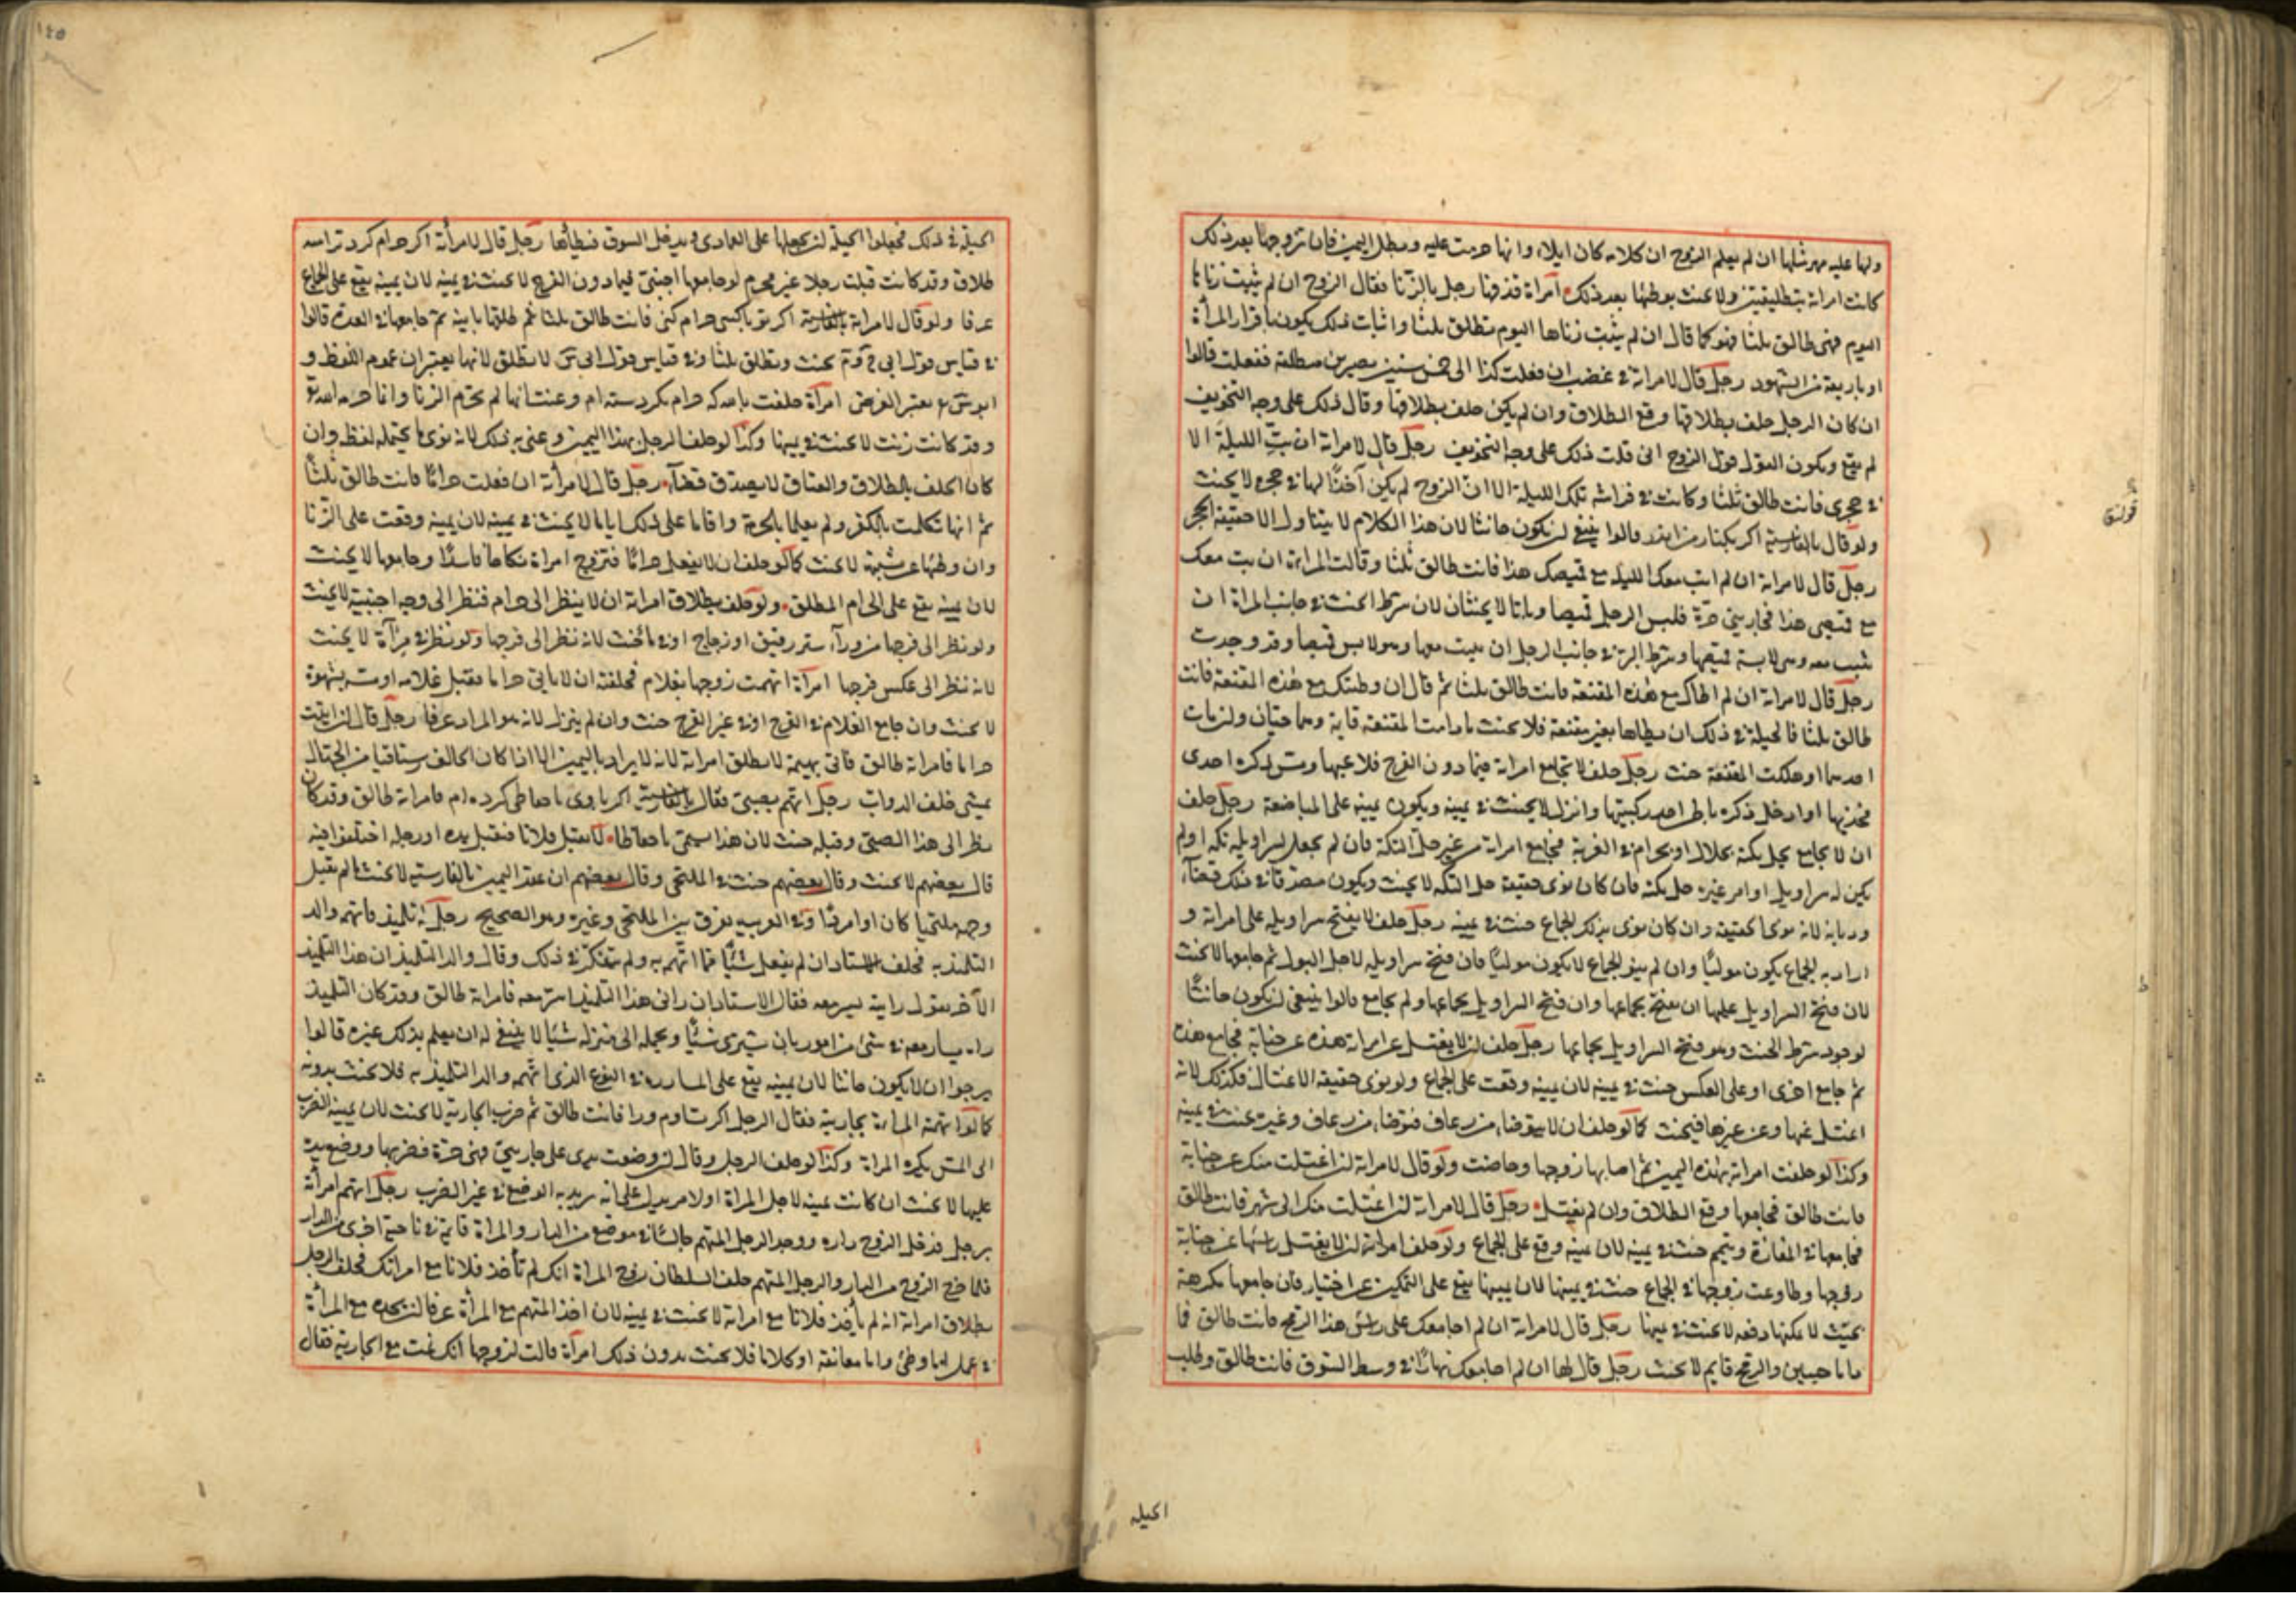 ولها عليه مهر مثلها ان لم يعلم الزوج ان كلامه كان ايلاء وانها حرمت عليه وبطل اليمين فان تزوجها بعد ذلك
كانت امراته بتطليقتين ولا يحنث بوطئها بعد ذلك امرأة قذفها رجل بالزنا فقال الزوج ان لم يثبت زناها
اليوم فهى طالق ثلثا فهو كما قال ان لم يثبت زناها اليوم تطلق ثلثا واثبات ذلك يكون باقرار المرأة
او باربعة من الشهود رجل قال لامراته فى غضب ان فعلت كذا الى خمس سنين تصيرين مطلقة ففعلت قالوا
ان كان الرجل حلف بطلاقها وقع الطلاق وان لم يكن حلف بطلاقها وقال ذلك على وجه التخويف
لم يقع ويكون القول قول الزوج انى قلت ذلك على وجه التخويف رجل قال لامراته ان بتّ الليلة الا
فى حجرى فانت طالق ثلثا وكانت فى فراشه تلك الليلة الا انّ الزوج لم يكن آخذًا لها فى حجره لا يحنث
ولو قال بالفارسية اكر بكنار من اندر قالوا ينبغى ان يكون حانثا لان هذا الكلام لا يتناول الا حقيقة الحجر
رجل قال لامراته ان لم ابت معك الليلة مع قميصك هذا فانت طالق ثلثا وقالت المراة ان بت معك
مع قميصى هذا فجاريتى حرّة فلبس الرجل قميصها وباتا لا يحنثان لان شرط الحنث فى جانب المراة ان
تبيت معه وهى لابسة قميصها وشرط البر فى جانب الرجل ان يبيت معها وهو لابس قميصها وقد وجدت
رجل قال لامراته ان لم اطاك مع هذه المقنعة فانت طالق ثلثا ثم قال ان وطئتك مع هذه المقنعة فانت
طالق ثلثا فالحيلة فى ذلك ان يطاها بغير مقنعة فلا يحنث ما دامت المقنعة قايمة وهما حيّان وان مات
احدهما او هلكت المقنعة حنث رجل حلف لا يجامع امراته فيما دون الفرج فلاعبها ومس ذكره احدى
فخذيها او ادخل ذكره باطن احد ركبتيها وانزل لا يحنث فى يمينه ويكون يمينه على المباضعة رجل حلف
ان لا يجامع بحل تكته بحلال او بحرام فى الغربة فجامع امراته من غير حلّ التكة فان لم يجعل لسراويله تكه او لم
يكن له سراويل او امر غيره حل تكته فان كان نوى حقيقة حل التكه لا يحنث ويكون مصدّقا فى ذلك قضآء
وديانه لانه نوى الحقيقة وان كان نوى بذلك الجماع حنث فى يمينه رجل حلف لا يفتح سراويله على امراته و
اراد به الجماع يكون موليًا وان لم ينو الجماع لا يكون موليًا فان فتح سراويله لاجل البول ثم جامعها لا يحنث
لان فتح السراويل عليها ان يفتح بجماعها وان فتح السراويل بجماعها ولم يجامع قالوا ينبغى ان يكون حانثًا
لوجود شرط الحنث وهو فتح السراويل بجماعها رجل حلف ان لا يغتسل عن امراته هذه عن جنابة فجامع هذه
ثم جامع اخرى او على العكس حنث فى يمينه لان يمينه وقعت على الجماع ولو نوى حقيقة الاغتسال فكذلك لانه
اغتسل عنها وعن غيرها فيحنث كما لو حلف ان لا يتوضا من رعاف فتوضا من رعاف وغيره حنث فى يمينه
وكذا لو حلفت امراته بهذه اليمين ثم اصابها زوجها وحاضت ولو قال لامراته ان اغتسلت منك عن جنابة
فانت طالق فجامعها وقع الطلاق وان لم يغتسل رجل قال لامراته ان اغتسلت منك الى شهر فانت طالق
فجامعها فى المفازة وتيمم حنث فى يمينه لان يمينه وقع على الجماع ولو حلف امراته ان لا يغتسل راسها عن جنابة
زوجها وطاوعت زوجها فى الجماع حنث فى يمينها لان يمينها يقع على التمكين عن اختيار فان جامعها مكرهة
بحيث لا يمكنها دفعه لا يحنث فى يمينها رجل قال لامراته ان لم اجامعك على راس هذا الرمح فانت طالق فما
داما حيين والرمح قايم لا يحنث رجل قال لها ان لم اجامعك نهارًا فى وسط السوق فانت طالق وطلب
الحيلة
قولنق
١٤٥
الحيلة فى ذلك فجعلوا الحيلة ان يجعلها على العمارى ويدخل السوق فيطأها رجل قال لامرأته اكر حرام كرد تراسه
طلاق وقد كانت قبلت رجلا غير محرم او جامعها اجنبىّ فيما دون الفرج لا يحنث فى يمينه لان يمينه يقع على الجماع
عرفا ولو قال لامراته بالفارسية اكر تو با كسى حرام كنى فانت طالق ثلثا ثم طلقها باينة ثم جامعها فى العدة قالوا
فى قياس قول ابى ح و م يحنث وتطلق ثلثا وفى قياس قول ابى س لا تطلق لانهما يعتبران عموم اللفظ و
ابو س يعتبر الغرض امرأة حلفت با مه كه حرام نكردسته ام وعنت انها لم تحرّم الزنا وانما حرمه الله تع
وقد كانت زنت لا يحنث فى يمينها وكذا لو حلف الرجل بهذا اليمين وعنى به ذلك لانه نوى ما يحتمله لفظه وان
كان الحلف بالطلاق والعتاق لا يصدق قضآء رجل قال لامرأته ان فعلت حرامًا فانت طالق ثلثًا
ثم انها تكلمت بالكفر ولم يعلما بالحرمة واقاما على ذلك اياما لا يحنث فى يمينه لان يمينه وقعت على الزنا
وان وطئها عن شبهة لا يحنث كما لو حلف ان لا يفعل حرامًا فتزوج امراة نكاحا فاسدًا وجامعها لا يحنث
لان يمينه يقع على الحرام المطلق ولو حلف بطلاق امراته ان لا ينظر الى حرام فنظر الى وجه اجنبية لا يحنث
ولو نظر الى فرجها من ورآء ستر رقيق او زجاج او فى ماء يحنث لانه نظر الى فرجها ولو نظر فى مرآة لا يحنث
لانه نظر الى عكس فرجها امرأة اتهمت زوجها بغلام فحلفته ان لا ياتى حراما فقبل غلامه او مسه بشهوة
لا يحنث وان جامع الغلام فى الفرج او فى غير الفرج حنث وان لم ينزل لانه هو المراد عرفا رجل قال ان اتيت
حراما فامراته طالق فاتى بهيمة لا تطلق امراته لانه لا يراد باليمين الا اذا كان الحالف رستاقيا من الجهال
يمشى خلف الدواب رجل اتهم بصبىّ فقال بالفارسية اكر با وى نا حفاظى كرده ام فامراته طالق وقد كان
نظر الى هذا الصبىّ وقبله حنث لان هذا يسمّى نا حفاظا لا يقبل فلانا فقبل يده او رجله اختلفوا فيه
قال بعضهم لا يحنث وقال بعضهم حنث فى الملتحى وقال بعضهم ان عقد اليمين بالفارسية لا يحنث ما لم يقبل
وجهه ملتحيا كان او امردًا وفى العربيه يفرق بين الملتحى وغيره وهو الصحيح رجل له تلميذ فاتهمه والد
التلميذ به فحلف الاستاد ان لم يفعل شيًا مما اتّهم به ولم يتفكر فى ذلك وقال والد التلميذ ان هذا التلميذ
الآخر يقول رايته يسر معه فقال الاستاد ان رانى هذا التلميذ اسر معه فامراته طالق وقد كان التلميذ
راه يسارّ معه فى شئ من امور بان يشترى شيًا ويحمله الى منزله شيا لا ينبغى له ان يعلم بذلك غيره قالوا
يرجوا ان لا يكون حانثا لان يمينه يقع على المساررة فى النوع الذى اتّهمه والد التلميذ به فلا يحنث بدونه
كما لو اتهمته المراءة بجاريته فقال الرجل اكر دست برم ورا فانت طالق ثم ضرب الجارية لا يحنث لان يمينه انصرف
الى المسّ يكره المراة وكذا لو حلف الرجل وقال ان وضعت يدى على جاريتى فهى حرّة فضربها ووضع يده
عليها لا يحنث ان كانت يمينه لاجل المراة او لامر يدل على انه يريد به الوضع فى غير الضرب رجل اتهم امرأته
برجل فدخل الزوج داره ووجد الرجل المتهم جالسًا فى موضع من الدار والمراة قايمة فى ناحية اخرى من الدار
فلما خرج الزوج من الدار والرجل المتهم حلف السلطان زوج المراة انك لم تأخذ فلانا مع امراتك فحلف الرجل
بطلاق امراته انه لم يأخذ فلانا مع امراته لا يحنث فى يمينه لان اخذ المتهم مع المرأة عرفا ان يجده مع المرأة
فى عمل اما وطئ واما معانقة او كلاما فلا يحنث بدون ذلك امرأة قالت لزوجها انك نمت مع الجارية فقال